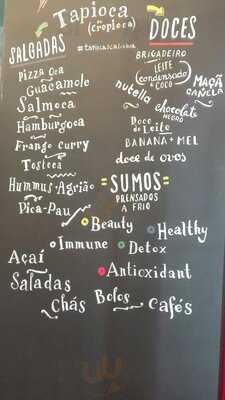 Tapioca
(crepioca)
#tapiocalcalinha
SALGADAS
Pizza oca
Guacamole
Salmoca
Hamburgoca
Frango curry
Tosteca
Hummus-Agrião
Pica-Pau
DOCES
BRIGADEIRO
LEITE
condensado
& COCO
nutella
MAÇÃ
CANELA
chocolate
NEGRO
Doce
de Leite
BANANA + MEL
doce de ovos
=SUMOS=
PRENSADOS
A FRIO
Beauty
Healthy
Immune
Detox
Antioxidant
Açaí
Saladas
Chás
Bolos
Cafés